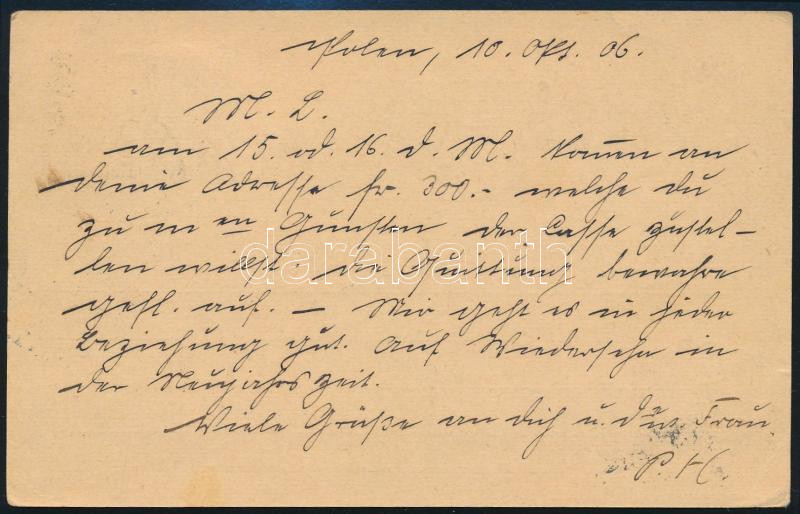 Polen, 10. Okt. 06.
M. L.
am 15. od. 16. d. M. kommen an
deine Adresse fr. 300.- welche du
zu m en Gunsten der Casse zustel-
len willst. Die Quittung bewahre
gefl. auf. - Mir geht es in jeder
Beziehung gut. Auf Wiedersehn in
der Neujahrszeit.
Viele Grüße an dich u. Frau
P. H.
darabanth